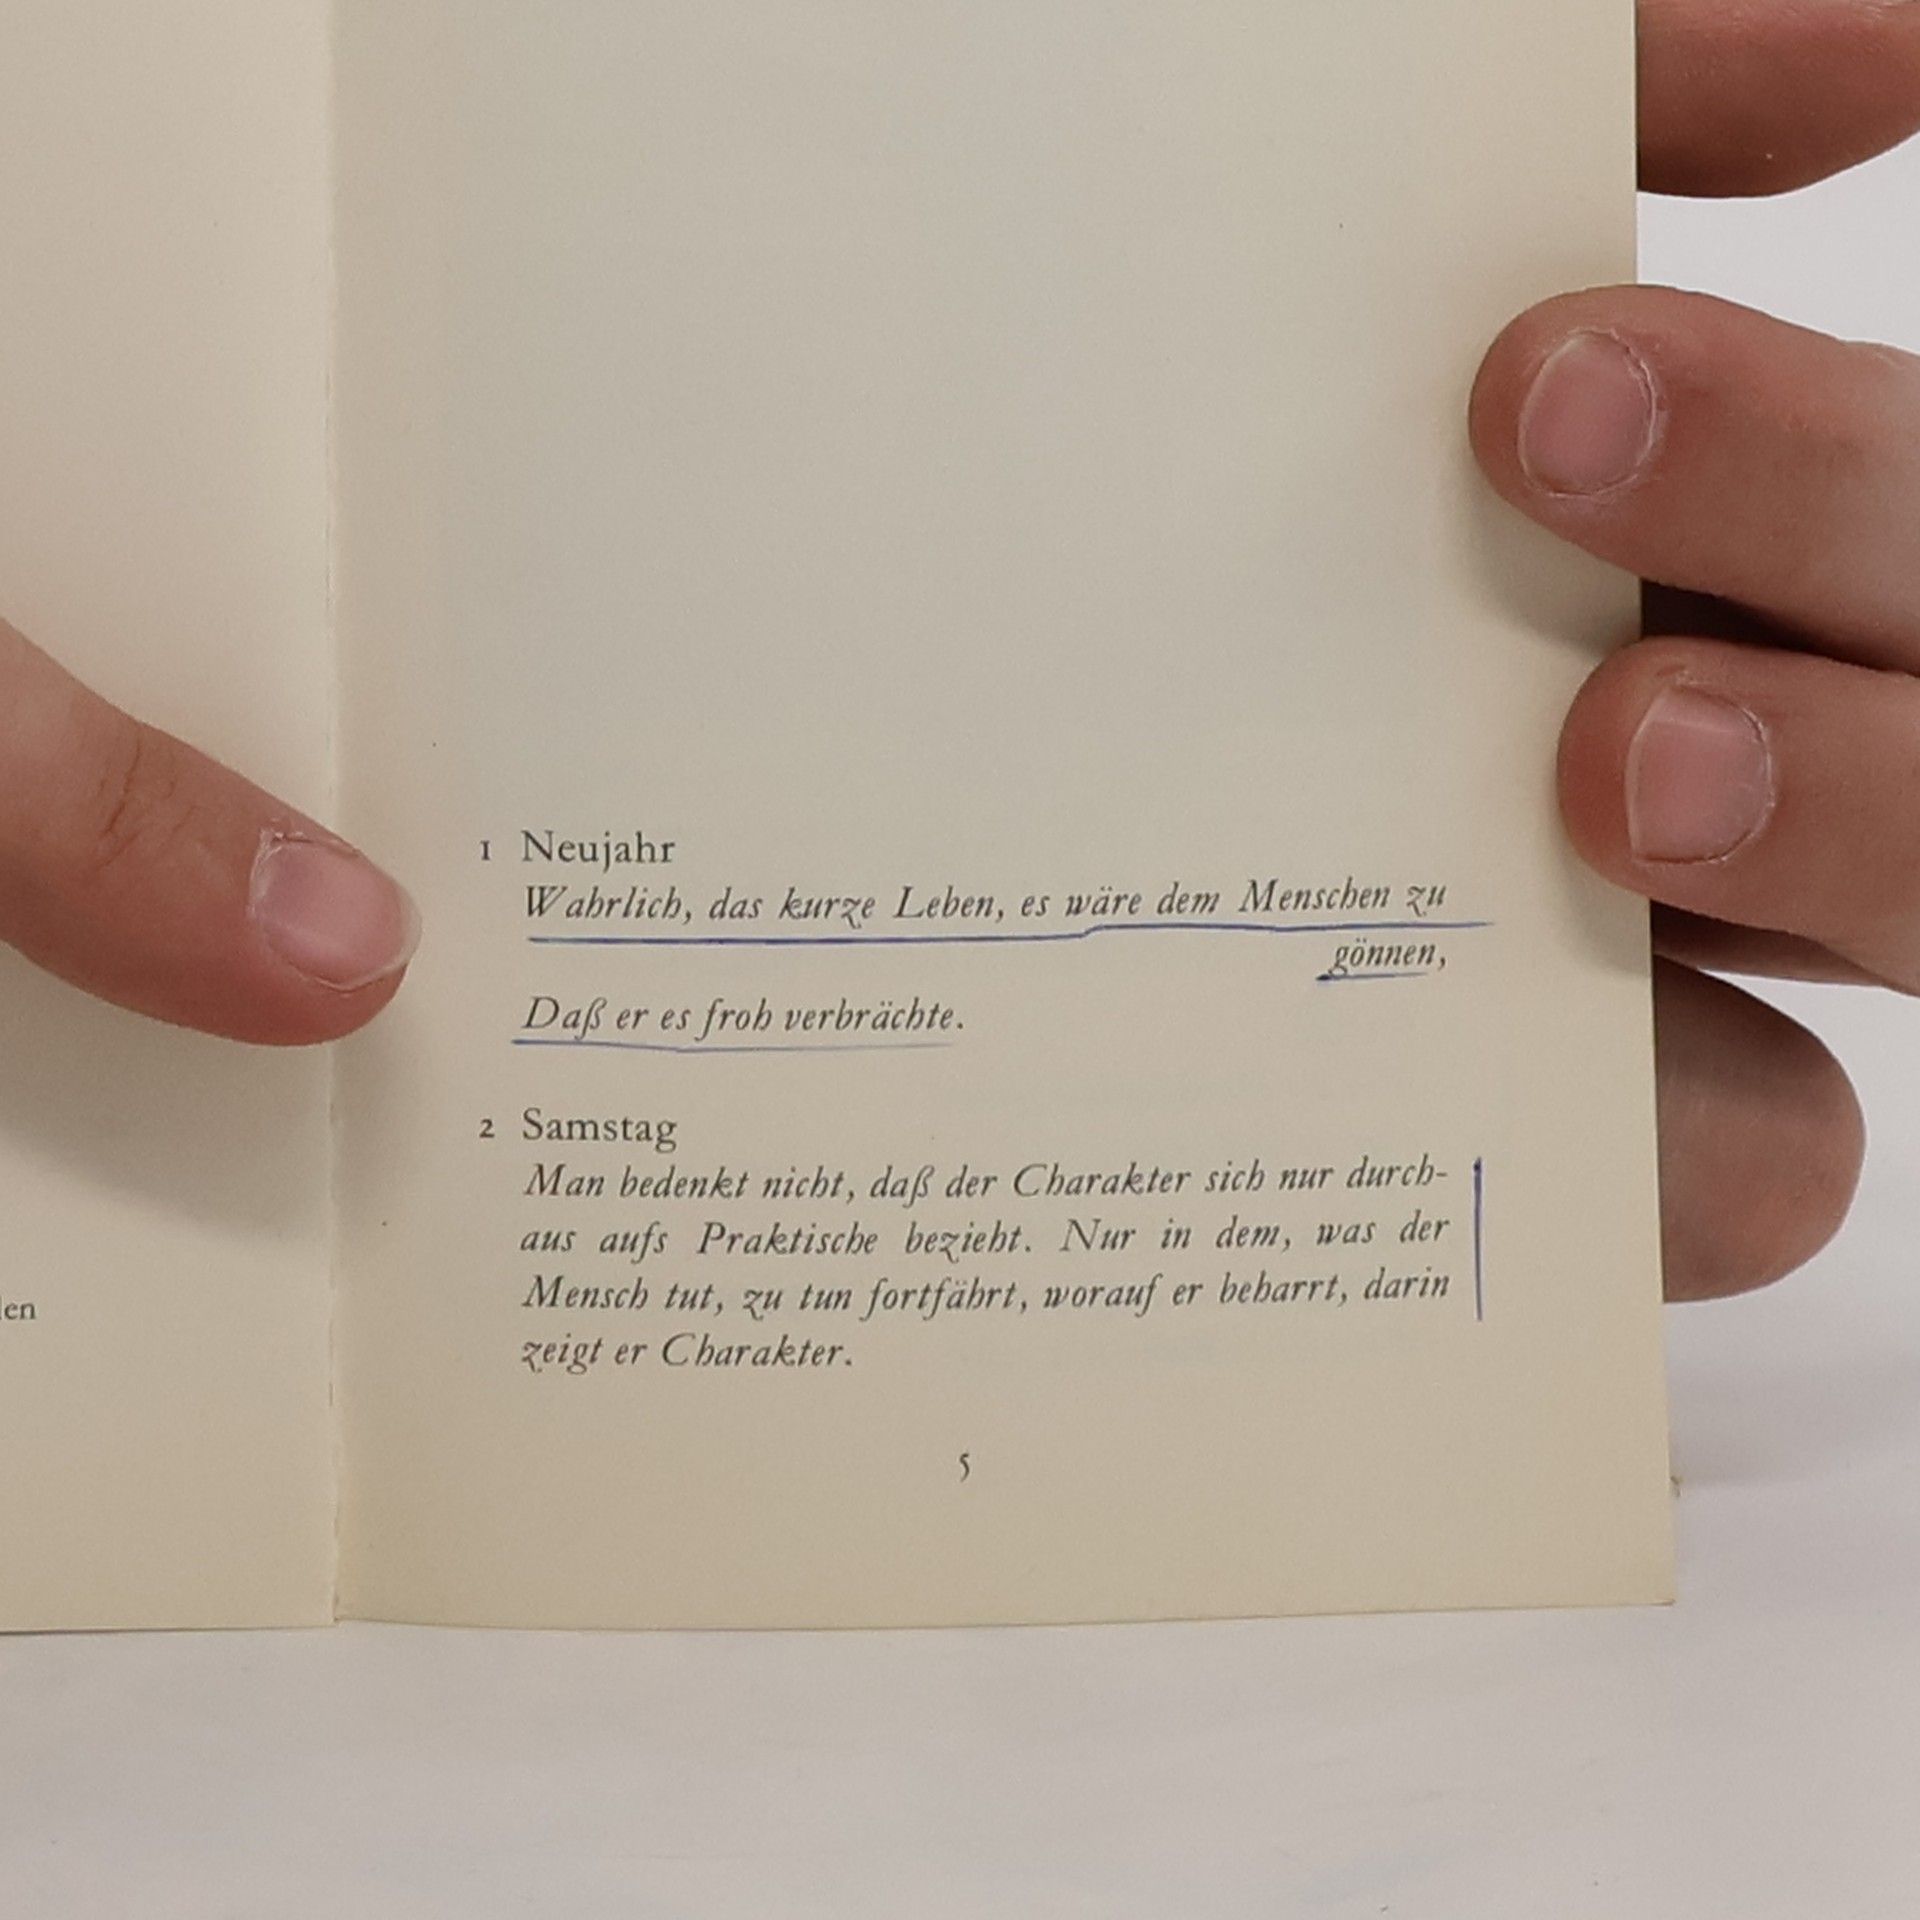 1 Neujahr
Wahrlich, das kurze Leben, es wäre dem Menschen zu
gönnen,
Daß er es froh verbrächte.
2 Samstag
Man bedenkt nicht, daß der Charakter sich nur durch-
aus aufs Praktische bezieht. Nur in dem, was der
Mensch tut, zu tun fortfährt, worauf er beharrt, darin
zeigt er Charakter.
5